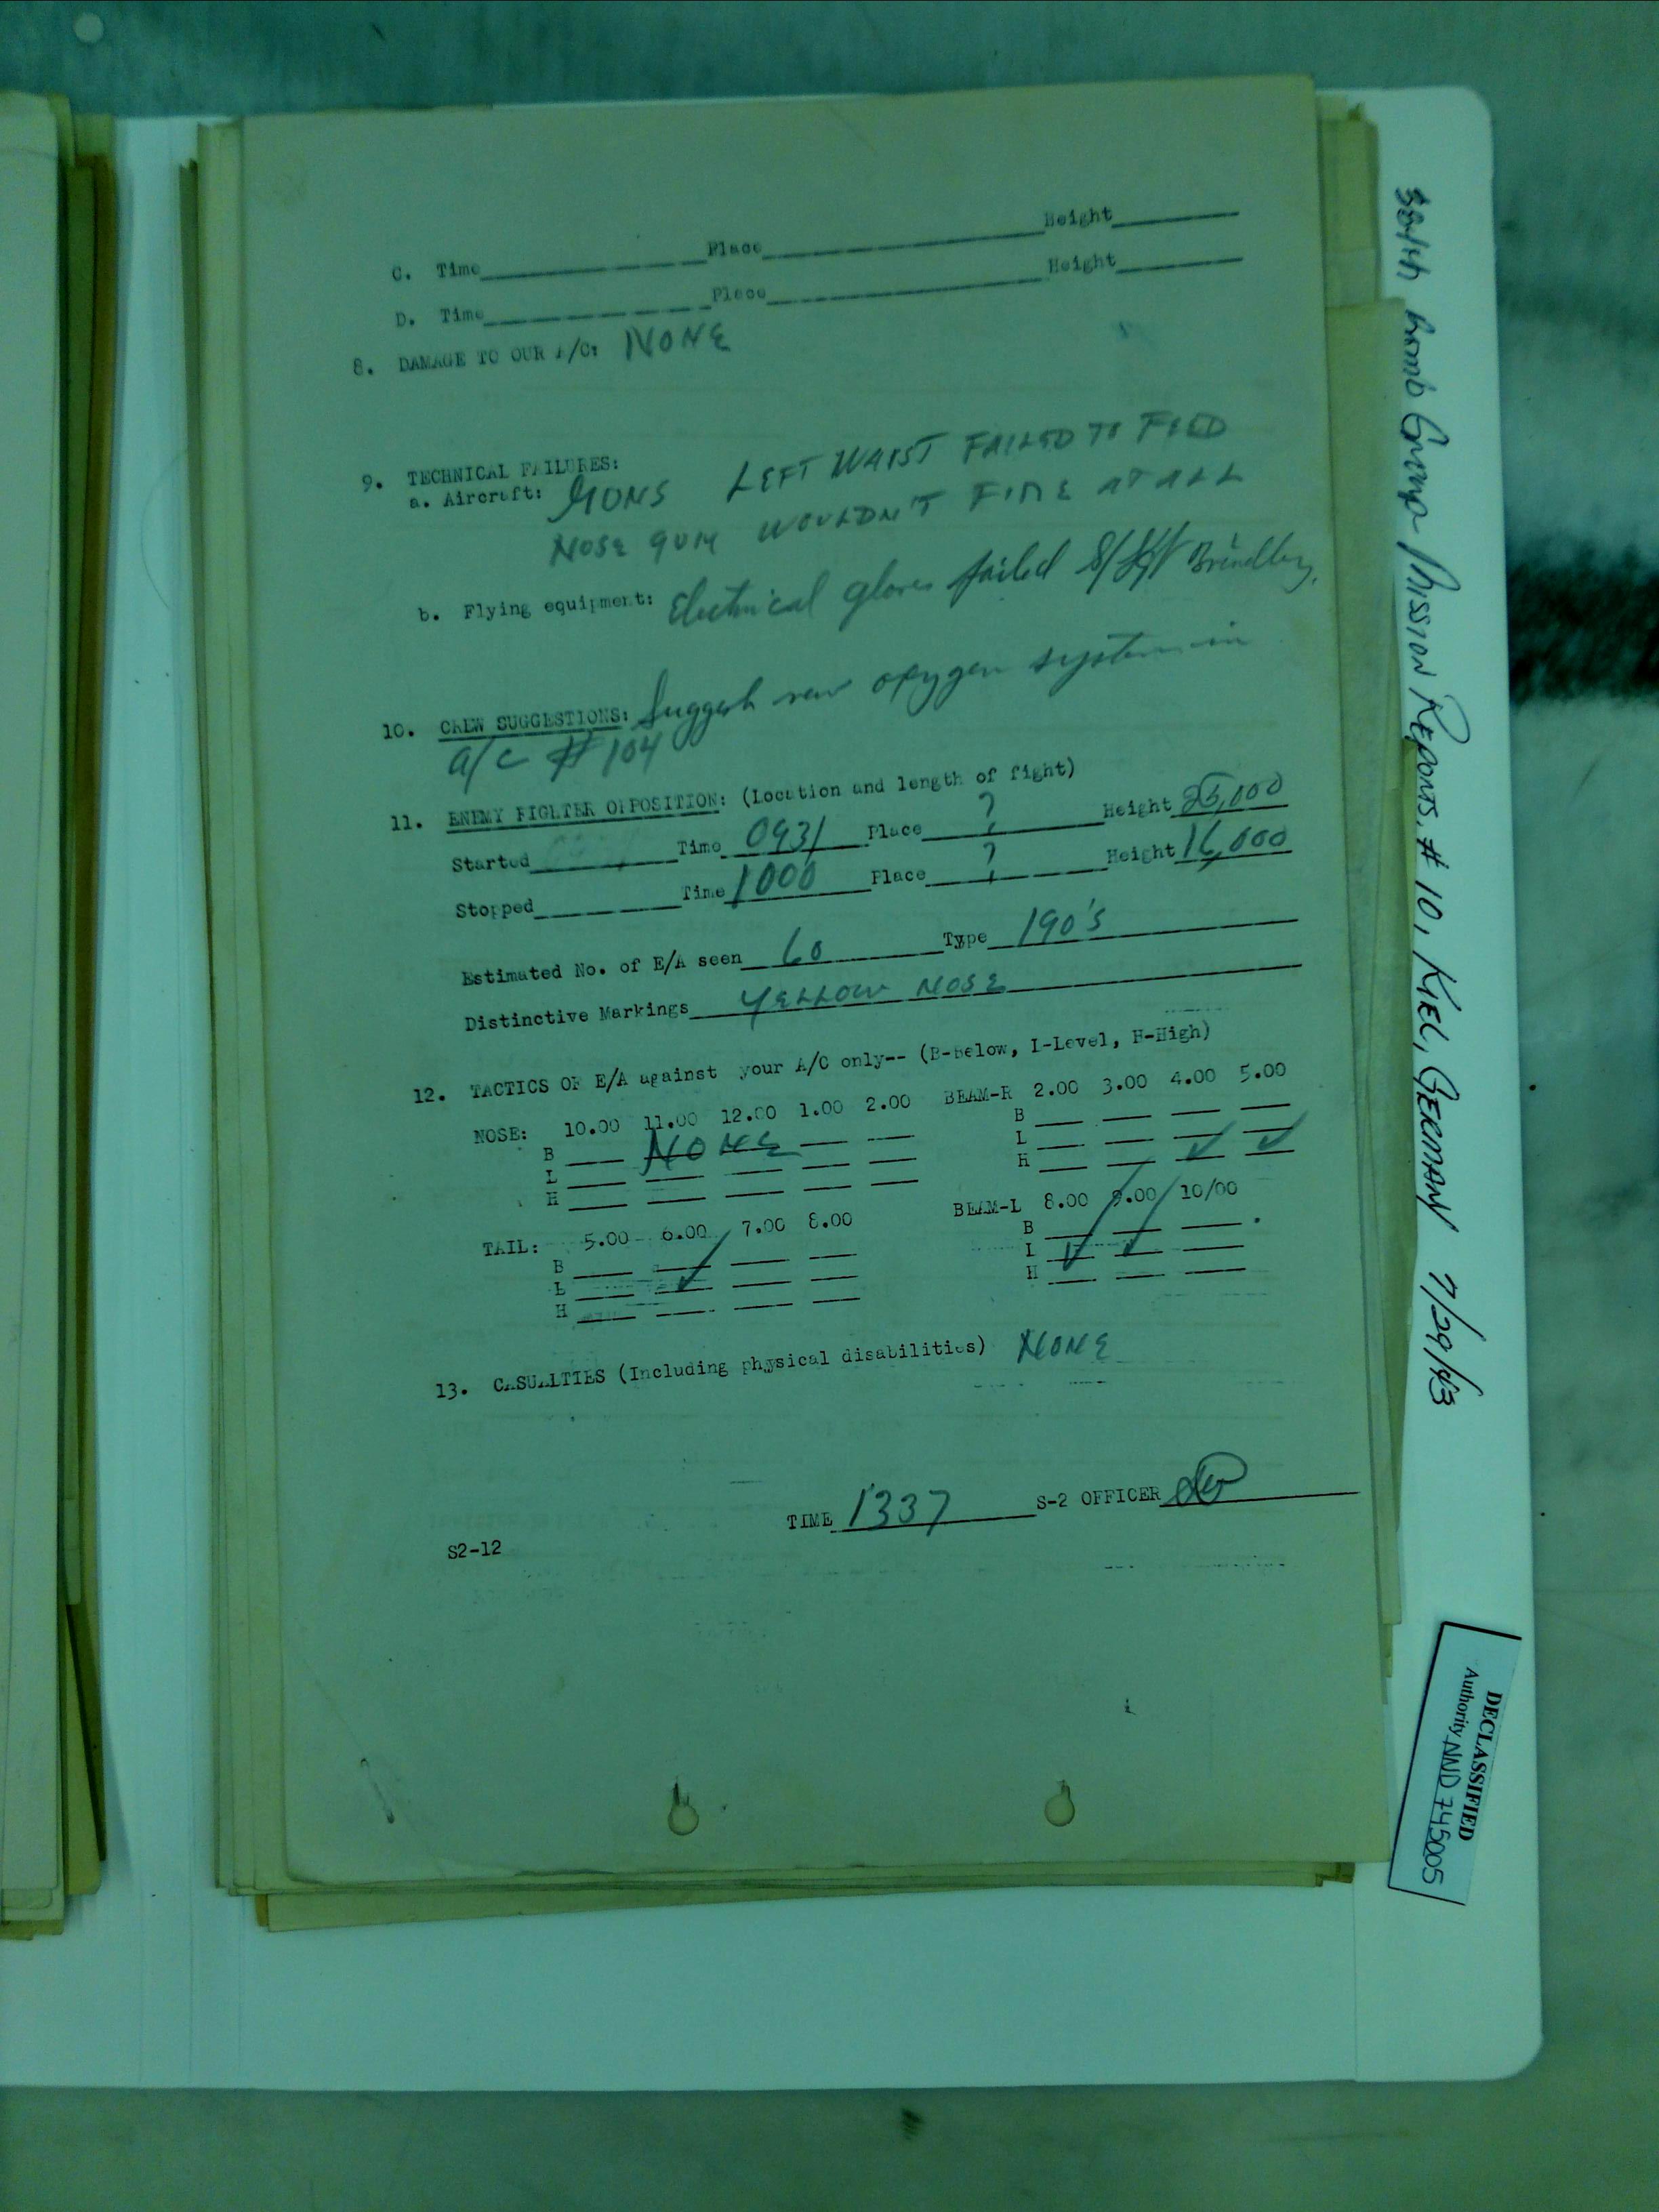 C. Time____ Place____ Height____
D. Time____ Place____ Height____
8. DAMAGE TO OUR A/C: NONE
9. TECHNICAL FAILURES:
a. Aircraft: GUNS LEFT WAIST FAILED TO FEED
NOSE GUN WOULDN'T FIRE AT ALL
b. Flying equipment: Electrical gloves failed S/Sgt Brindley.
10. CREW SUGGESTIONS: Suggest new oxygen system in
a/c # 104
11. ENEMY FIGHTER OPPOSITION: (Location and length of fight)
Started____ Time 0931 Place ? Height 25,000
Stopped____ Time 1000 Place ? Height 16,000
Estimated No. of E/A seen 60 Type 190's
Distinctive Markings YELLOW NOSE
12. TACTICS OF E/A against your A/C only-- (B-Below, L-Level, H-High)
NOSE: 10.00 11.00 12.00 1.00 2.00 BEAM-R 2.00 3.00 4.00 5.00
B NONE B
L L ✓ ✓
H H
TAIL: 5.00 6.00 7.00 8.00 BEAM-L 8.00 9.00 10/00
B B
L ✓ L ✓ ✓
H H
13. CASUALTIES (Including physical disabilities) NONE
TIME 1337 S-2 OFFICER
S2-12
384th Bomb Group Mission Reports, # 10, KIEL, GERMAN 7/29/43
DECLASSIFIED
Authority NND 745005